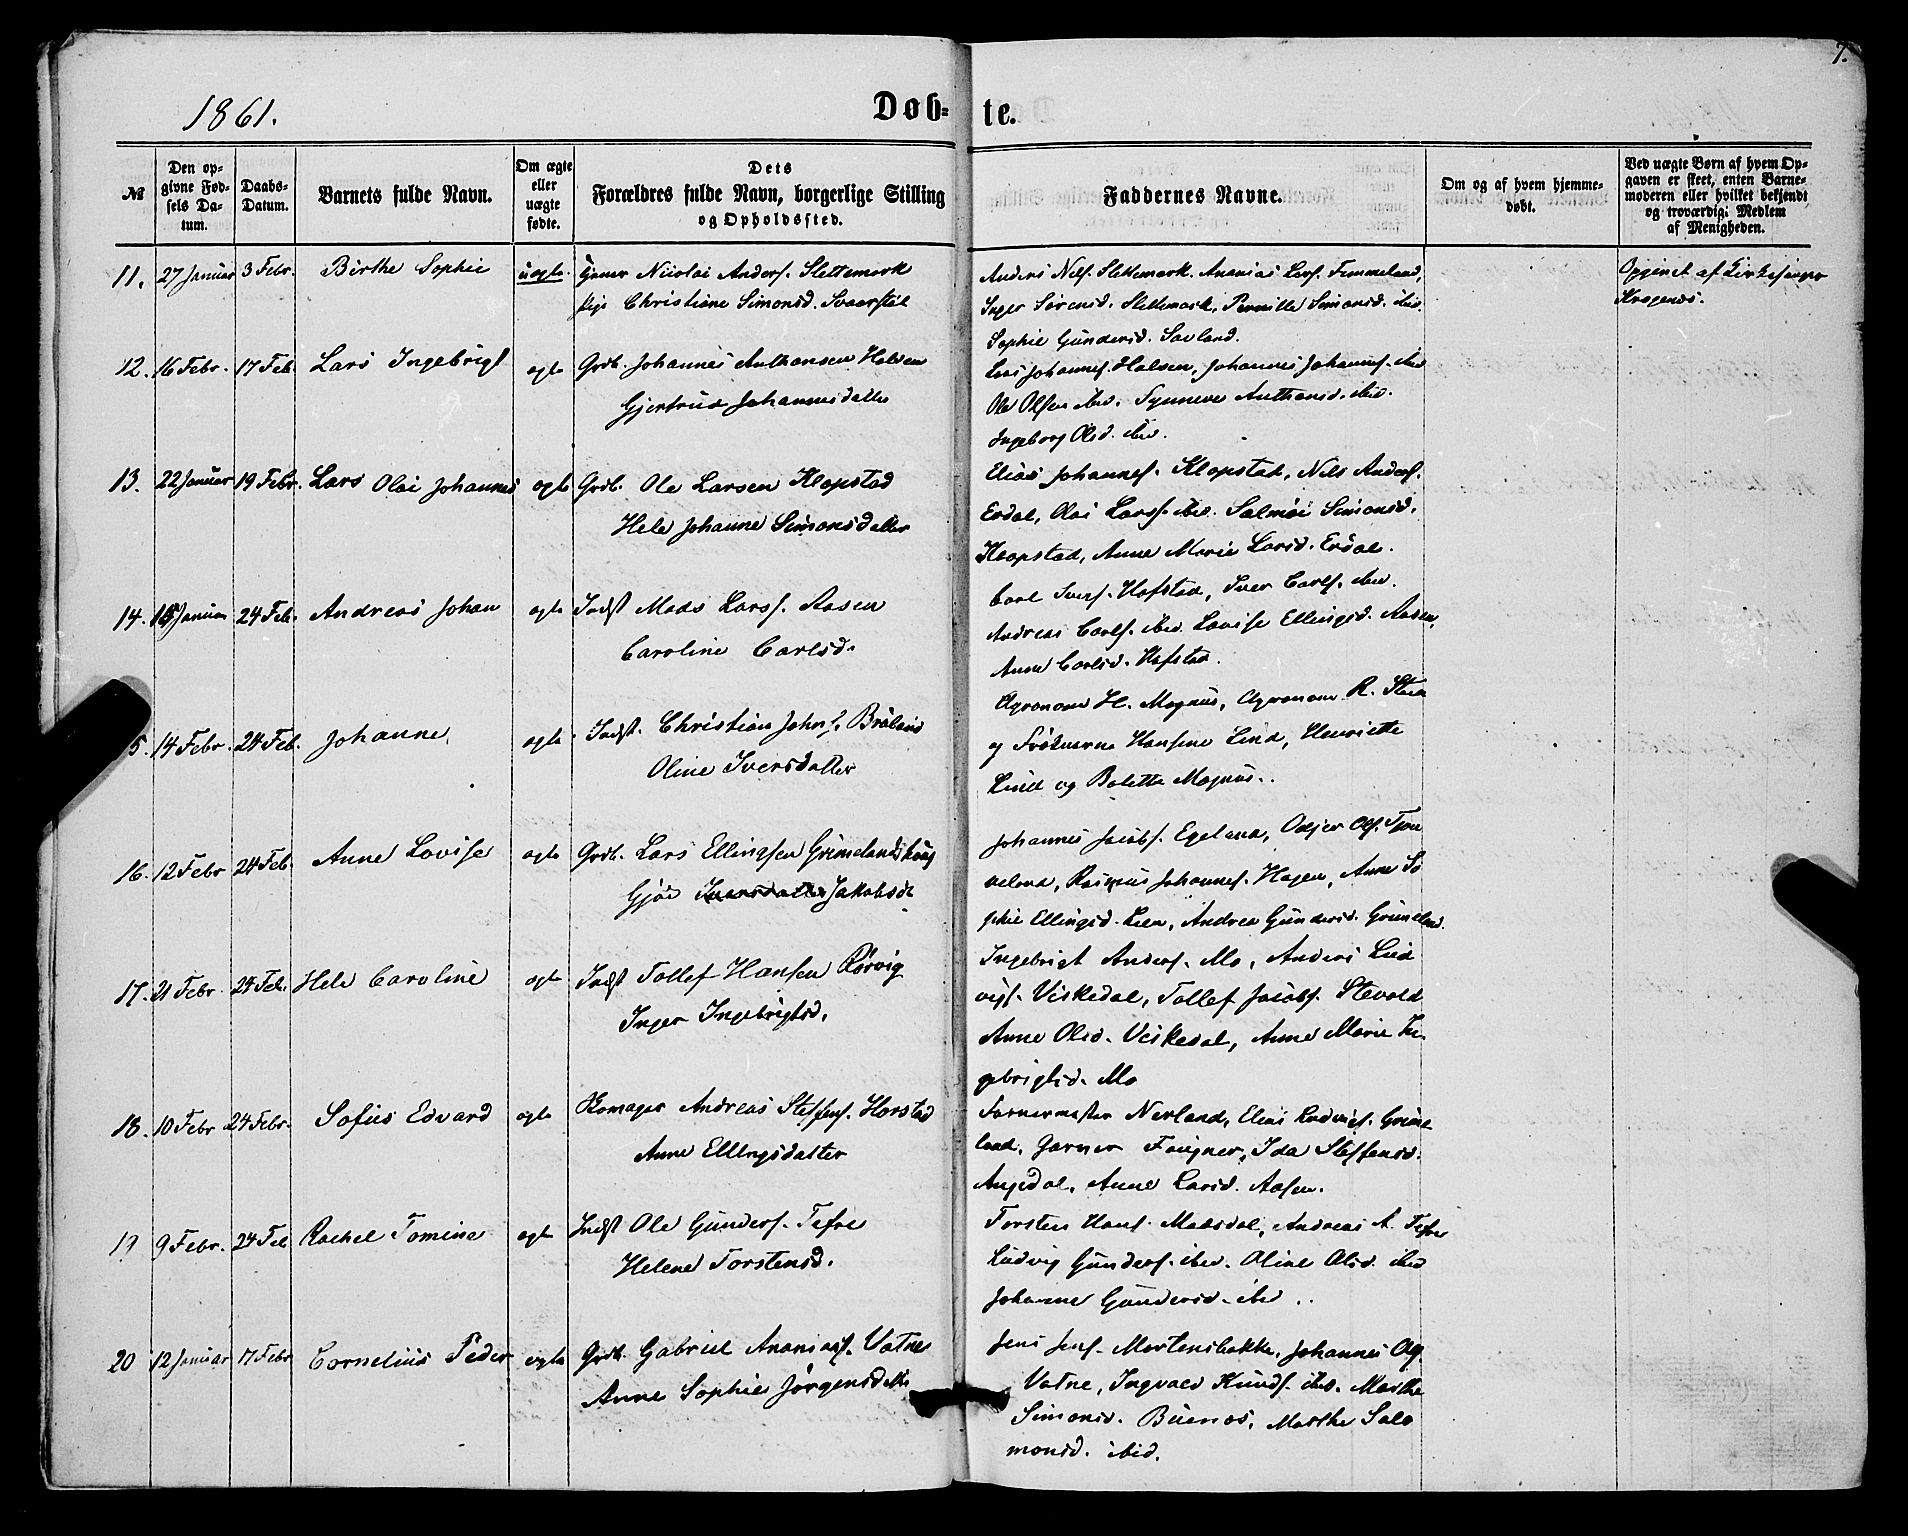 7.
1861.
Døb- te.
№
Den op-
givne Fød-
sels Da-
tum.
Daabs-
Datum.
Barnets fulde Navn.
Om ægte
eller
uægte
fødte.
Dets
Forældres fulde Navn, borgerlige Stilling
og Opholdssted.
Faddernes Navne.
Om og af hvem hjemme-
døbt.
Ved uægte Børn af hvem Op-
gaven er skeet, enten Barne-
moderen eller hvilket bekjendt
og troværdigt Medlem
af Menigheden.
11. 27 Januar 3 Febr. Birthe Sophie uægte Ungkr Nicolai Anders. Slettemark
Pige Christiane Simonsd. Svaarstøl
Anders Nils. Slettemark, Ananias Lars. Femmeland,
Inger Sørensd. Slettemark, Pernille Simonsd. ibid.
Sophie Gundersd. Savland.
Opgivet af Kirkesanger
Kragenæs.
12. 16 Febr. 17 Feb. Lars Ingebrigt ægte Grdb. Johannes Anthonsen Halsen
Gjertrud Johannesdatter
Lars Johannes. Halsen, Johannes Johannes. ibid
Ole Olsen ibid. Synneve Anthonsd. ibid.
Ingeborg Olsd. ibid.
13. 22 Januar 19 Febr. Lars Olai Johannes ægte Grdb. Ole Larsen Klopstad
Hele Johanne Simonsdatter
Elias Johannes. Klopstad, Nils Anders.
Erdal, Olai Lars. ibid. Salmøi Simonsd.
Klopstad, Anne Marie Larsd. Erdal.
14. 15 Januar 24 Feb. Andreas Johan ægte Indst Mads Lars. Aasen
Caroline Carlsd.
Carl Ivers. Hafstad, Iver Carls. ibid.
Andreas Carls. ibid. Lovise Ellingsd. Aasen,
Anne Carlsd. Hafstad.
5. 14 Febr. 24 Feb. Johanne ægte Indst. Christian Johns. Bråland
Oline Iversdatter
Agronom H. Magnus, Agronom R. Stein
og Frøknerne Hansine Lind, Henriette
Lind og Bolette Magnus.
16. 12 Febr 24 Feb. Anne Lovise ægte Grdb. Lars Ellingsen Grimelandshaug
Gjøe Iversdatter Jakobsd
Johannes Jacobs. Egeland, Odjer Ols. Tjøn
neland, Rasmus Johannes. Hagen, Anne So
phie Ellingsd. Lien, Andrea Gundersd. Grimeland.
17. 21 Febr 24 Feb. Hele Caroline ægte Indst Tollef Hansen Rørvig
Inger Ingebrigtsd.
Ingebrigt Anders. Mo, Anders Lud
vigs. Viskedal, Tollef Jacobs. Stevold
Anne Olsd. Viskedal, Anne Marie In-
gebrigtsd. Mo
18. 10 Febr 24 Febr. Sofius Edvard ægte Skomager Andreas Steffens. Horstad
Anne Ellingsdatter
Farvermester Nerland, Elias Ludvigs. Grime
land, Garver Faugner, Ida Steffensd.
Angedal, Anne Larsd. Aasen.
19 9 Febr. 24 Feb Rachel Tomine ægte Indst Ole Gunders. Tefre
Helene Torstensd.
Torsten Hans. Maasdal, Andreas A. Tefre
Ludvig Gunders. ibid. Oline Olsd. ibid
Johanne Gundersd. ibid
20 12 Januar 17 Febr Cornelius Peder ægte Grdb. Gabriel Ananias. Vatne
Anne Sophie Jørgensdatter
Jens Jens. Mortensbakke, Johannes Og.
Vatne, Ingvald Knuds. ibid. Marthe
Simonsd. Buenæs, Marthe Salo
monsd. ibid.